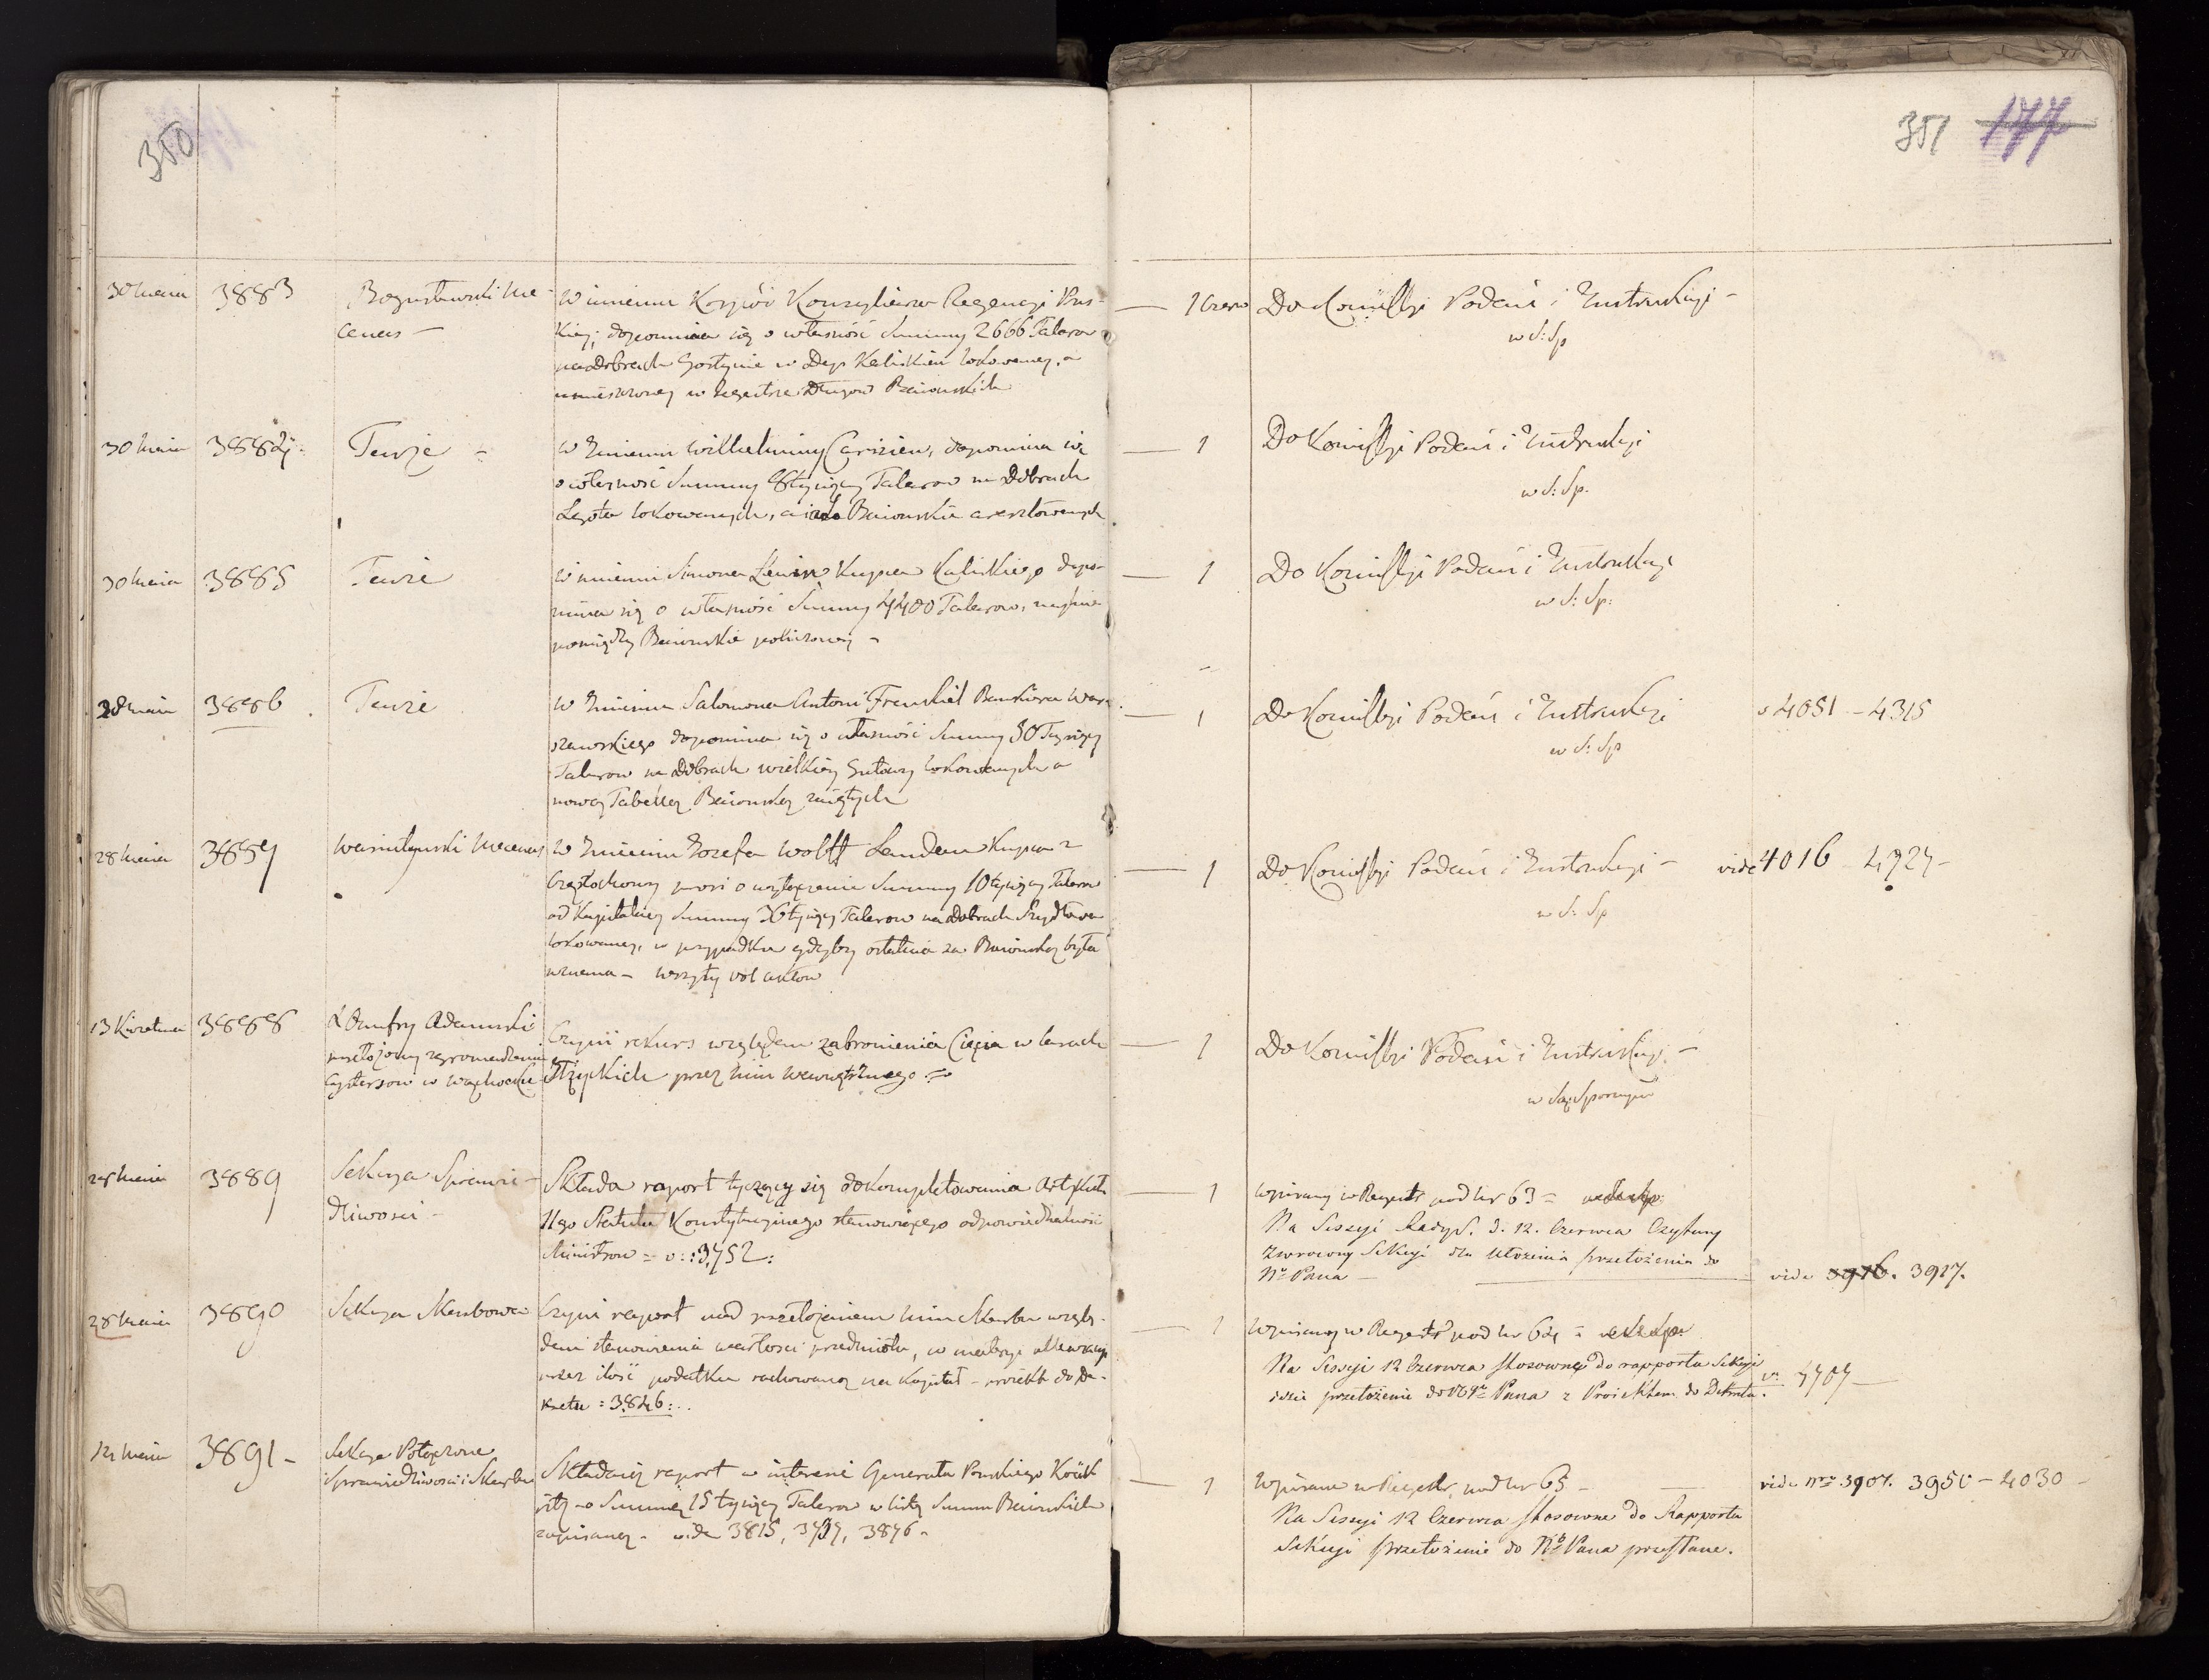 350
351 177
30 Maia 3883 Bogusławski Me-
cenas —
W imieniu Konsyliarza Regencyi Prus-
kiey, dopomina się o własność Summy 2666 Talarow
na Dobrach Gostynie w Dep Kaliskim lokowaney, a
umieszczoney w Regestrze Długow Baiońskich
— 1 Czerw Do Kommissyi Podań i Instrukcyi —
w S: Sp
30 Maia 3884 Tenże —
W Imieniu Wilhelminy, dopomina się
o własność Summy 8 tysięcy Talarow na Dobrach
Lgota lokowanych, a za Baiońskie aresztowanych
— 1 Do Kommissyi Podań i Instrukcyi
w S: Sp.
30 Maia 3885 Tenże
W imieniu Simona Lewin Kupca Kaliskiego dopo-
mina się o własność Summy 4400 Talarow,
pomiędzy Baiońskie policzoney —
— 1 Do Kommissyi Podań i Instrukcyi
w S: Sp:
Maia 3886 Tenże
W Imieniu Salomona Antoni Frenkiel Bankiera War-
szawskiego dopomina się o własność Summy 30 Tysięcy
Talarow na Dobrach wielkiey lokowanych a
nową Tabellą Baiońską zaiętych
— 1 Do Kommissyi Podań i Instrukcyi
w S: Sp
v 4051 — 4315
28 Maia 3887 Mecenas
W Imieniu Jozefa Wolff Landau Kupca z
Częstochowy prosi o wyłączenie Summy 10 tysięcy Talarow
od Kapitalney Summy 36 tysięcy Talarow na Dobrach Szydłow
lokowaney, w przypadku gdyby ostatnia za Baiońską była
uznana — wszyty vol aktow
— 1 Do Kommissyi Podań i Instrukcyi —
w S: Sp
vide 4016 — 4727 —
13 Kwietnia 3888 X Onufry Adamski
przełożony zgromadzenia
Cystersow w Wąchocku
Czyni rekurs względem zabronienia Cięcia w lasach
przez Min Wewnętrznego
— 1 Do Kommissyi Podań i Instrukcyi —
w Są: Spornym
28 Maia 3889 Sekcya Sprawie-
dliwości —
Składa raport tyczący się dokompletowania Artykułu
11go Statutu Konstytucyinego stanowiącego odpowiedzialność
Ministrow = v: 3752:
— 1 Wpisany w Regestr pod Nr 63 =
Na Sessyi Rady S. d. 12. Czerwca Czytany
Zwrocony Sekcyi dla Ułożenia przełożenia do
No Pana —
vide 3976. 3917.
28 Maia 3890 Sekcya Skarbowa
Czyni raport nad przełożeniem Min Skarbu wzglę-
dem stanowienia wartości przedmiotu, w materyi
przez ilość podatku rachowaney na Kapitał — proiekt do De-
kretu = 3846: . .
— 1 Wpisany w Regestr pod Nr 64 =
Na Sessyi 12 Czerwca stosownie do rapportu Sekcyi
idzie przełożenie do No Pana z Proiektem do Dekretu.
v: 4707 —
14 Maia 3891 — Sekcye Połączone
Sprawiedliwości i Skarbu
Składaią raport w interesie Generała Pruskiego
o Summę 15 tysięcy Talarow w listę Summ Baiońskich
zapisaney — vide 3815, 3739, 3876 —
— 1 Wpisane w Regestr pod Nr 65 —
Na Sessyi 12 Czerwca stosownie do Rapportu
Sekcyi przełożenie do No Pana przesłane.
vide Nro 3907. 3950 — 4030 —